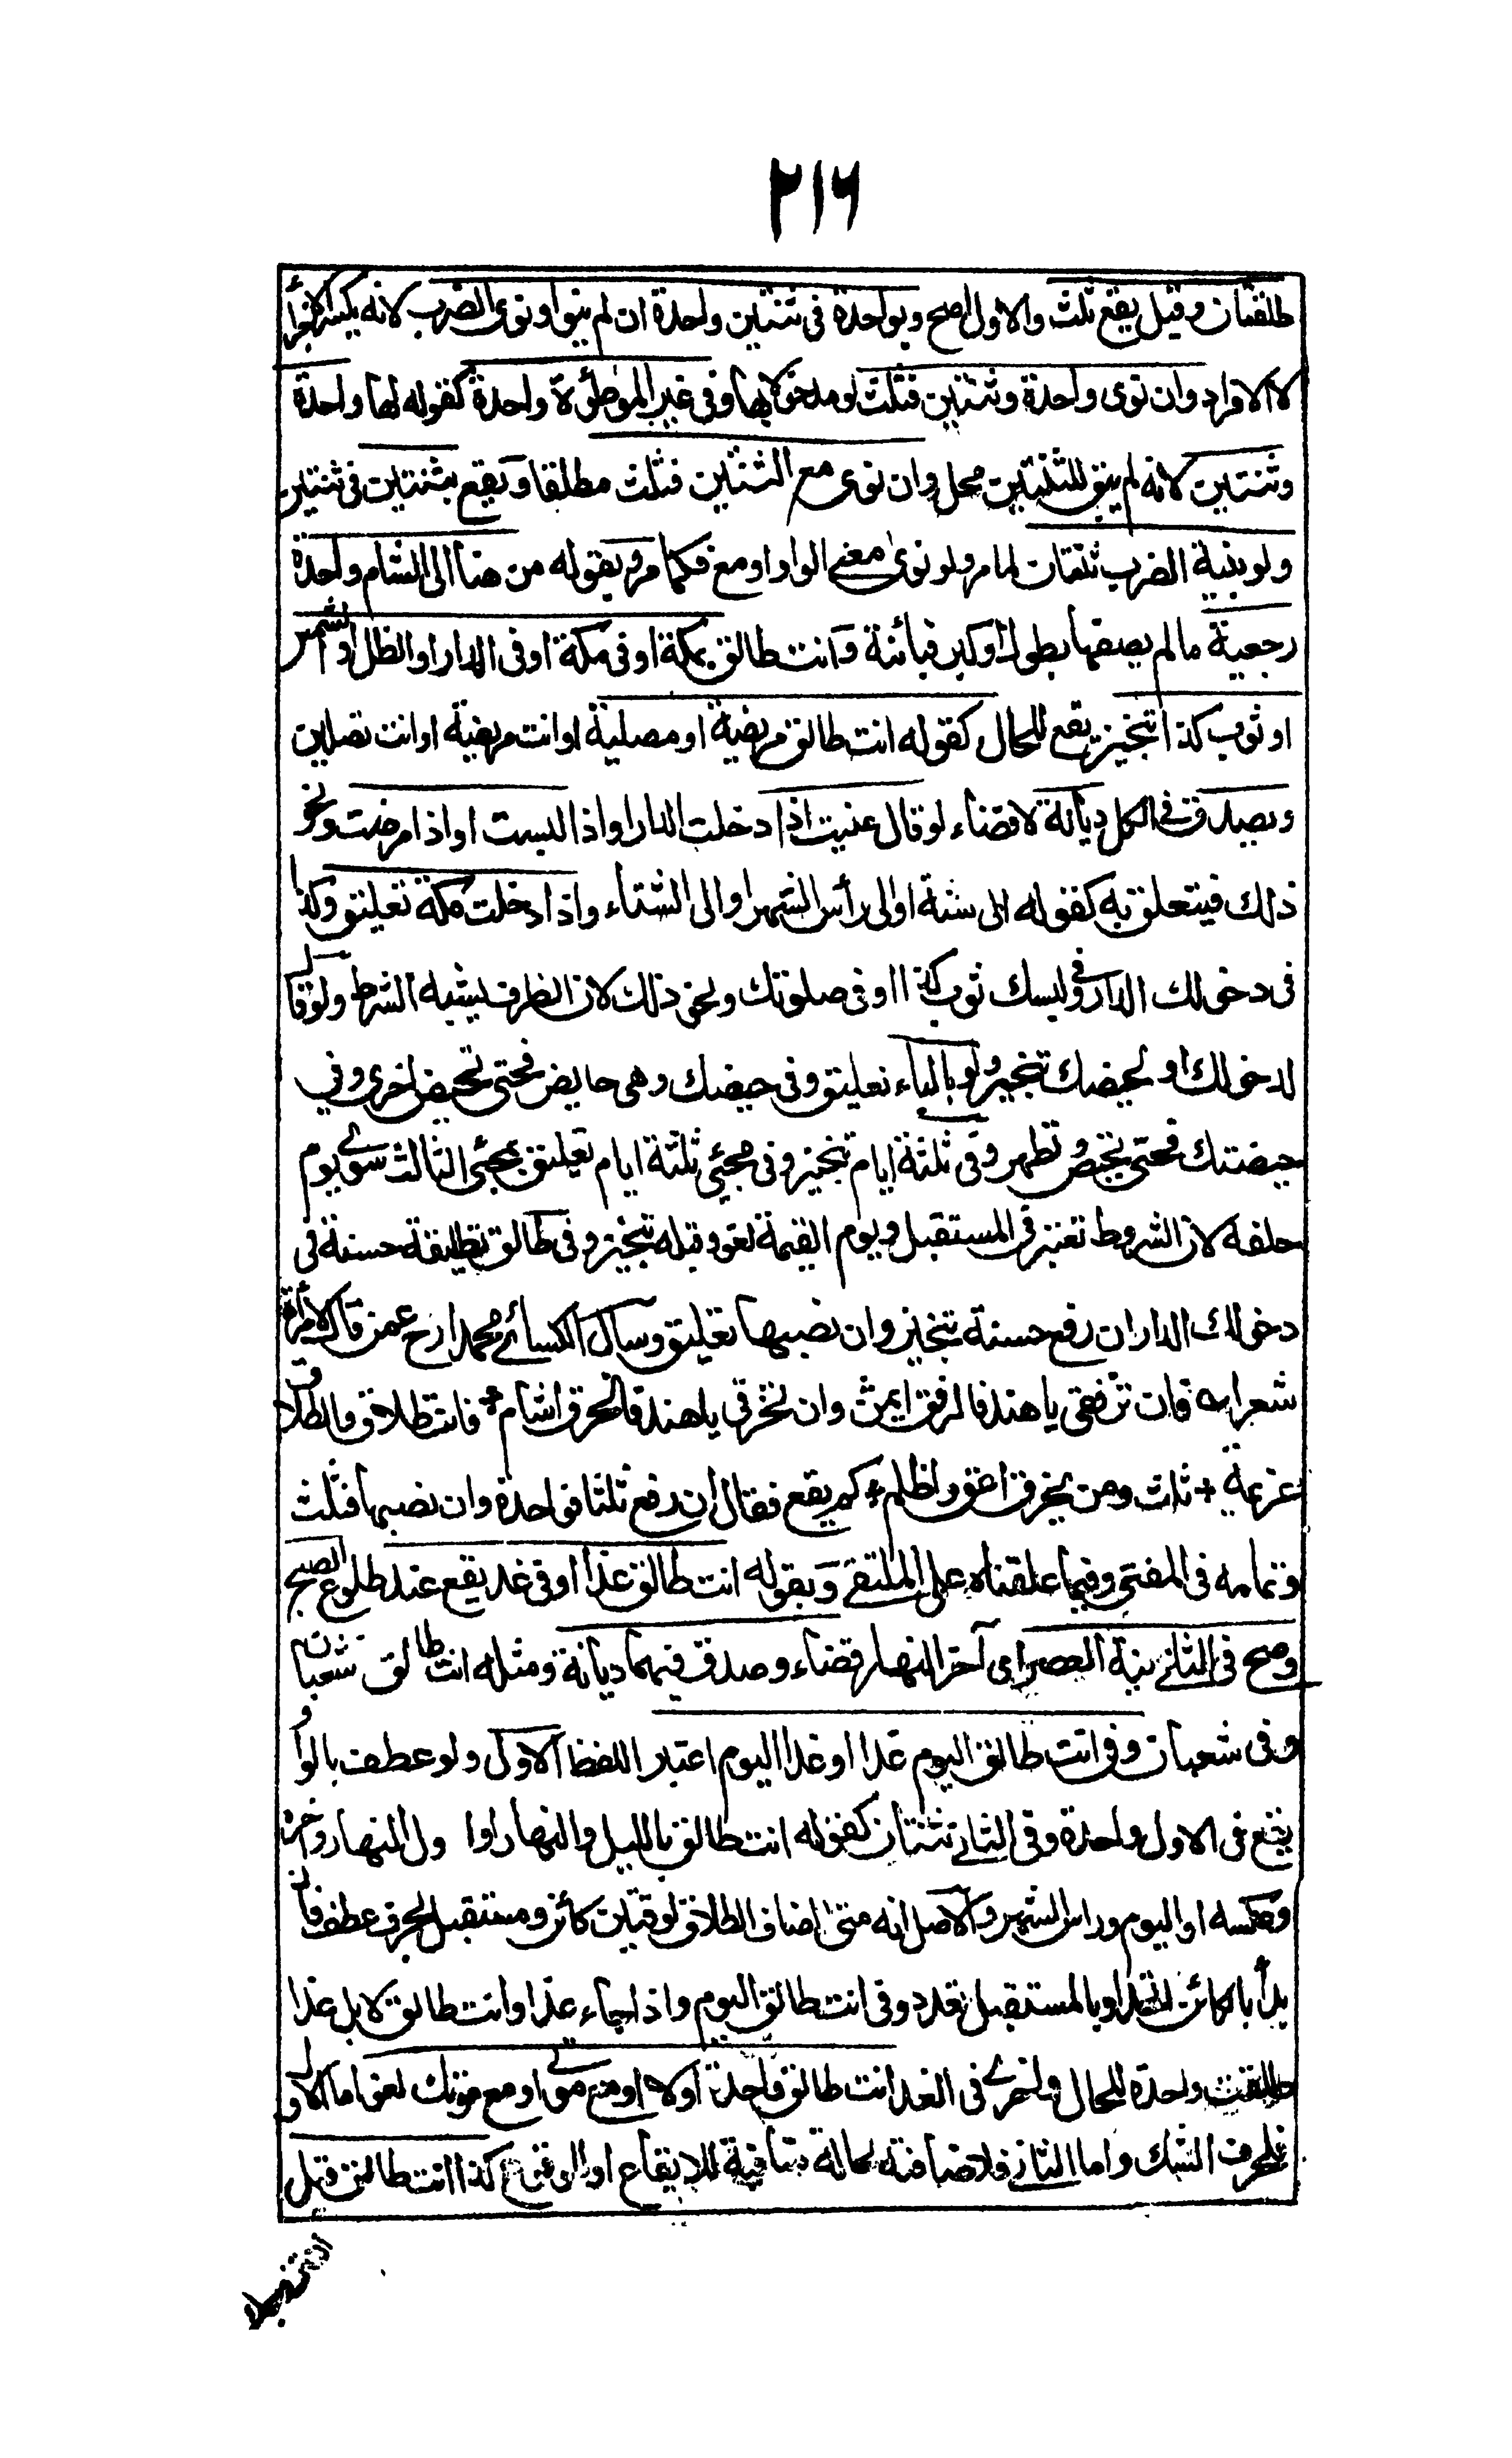 ٢١٦
طلقتان وقيل يقع ثلث والاول اصح وبواحدة فى ثنتين واحدة ان لم ينو او نوى الضرب لانه يكثر الاجزاء
لا الافراد وان نوى واحدة وثنتين فثلث لو مدخولا بها وفى غير الموطؤة واحدة كقوله لها واحدة
وثنتين لانه لم يبق للثنتين محل وان نوى مع الثنتين فثلث مطلقا و يقع بثنتين فى ثنتين
ولو بنية الضرب ثنتان لما مر ولو نوى معنى الواو او مع فكما مر و بقوله من هنا الى الشام واحدة
رجعية ما لم يصفها بطول او كبر فبائنة و انت طالق بمكة او فى مكة او فى الدار او الظل او الشمس
او ثوب كذا تنجيز يقع للحال كقوله انت طالق مريضة او مصلية او انت مريضة او انت تصلين
ويصدق فى الكل ديانة لا قضاء لو قال عنيت اذا دخلت الدار او اذا لبست او اذا مرضت ونحو
ذلك فيتعلق به كقوله الى سنة او الى رأس الشهر او الى الشتاء واذا دخلت مكة تعليق وكذا
فى دخولك الدار وفى لبسك ثوب كذا او فى صلوتك ونحو ذلك لان الظرف يشبه الشرط ولو قال
لدخولك او لحيضك تنجيز ولو بالباء تعليق وفى حيضك وهى حايض فحتى تحيض اخرى وفى
حيضتك فحتى تحيض وتطهر وفى ثلثة ايام تنجيز وفى مجئ ثلثة ايام تعليق بمجئ الثالث سوى يوم
حلفه لان الشروط تعتبر فى المستقبل ويوم القيمة لغو وقبله تنجيز وفى طالق تطليقة حسنة فى
دخولك الدار ان رفع حسنة تنجيز وان نصبها تعليق وسال الكسائى محمدا رح عمن قال لامرأة
شعرا فان ترفقى يا هند فالرفق ايمن وان تخرقى يا هند فالخرق اشام * فانت طلاق والطلاق
عزيمة * ثلث ومن يخرق اعق واظلم * كم يقع فقال ان رفع ثلثا فواحدة وان نصبها فثلث
وتمامه فى المغنى وفيما علقناه على الملتقى و بقوله انت طالق غدا او فى غد يقع عند طلوع الصبح
وصح فى الثانى نية العصر اى آخر النهار قضاء وصدق فيهما ديانة ومثله انت طالق شعبان
وفى شعبان وفى انت طالق اليوم غدا او غدا اليوم اعتبر اللفظ الاول ولو عطف بالواو
يقع فى الاول واحدة وفى الثانى ثنتان كقوله انت طالق بالليل والنهار او اول النهار وآخره
وعكسه او اليوم وراس الشهر والاصل انه متى اضاف الطلاق لوقتين كائن ومستقبل بحرف عطف فان
بدأ بالكائن اتحد او بالمستقبل تعدد وفى انت طالق اليوم واذا جاء غد او انت طالق لا بل غدا
طلقت واحدة للحال واخرى فى الغد انت طالق واحدة اولا او مع موتى او مع موتك لغو اما الاول
فلحرف الشك واما الثانى فلاضافته لحالة منافية للايقاع او الوقوع كذا انت طالق قبل